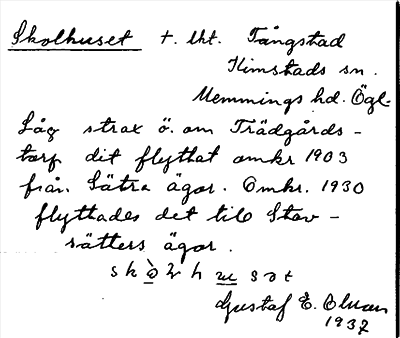 Skolhuset t. lht. Tångstad
Kimstads sn.
Memmings hd. Ögl.
Låg strax ö. om Trädgårds-
torp dit flyttat omkr 1903
från Sätra ägor. Omkr. 1930
flyttades det till Stav-
sätters ägor.
Gustaf E. Olsson
1937